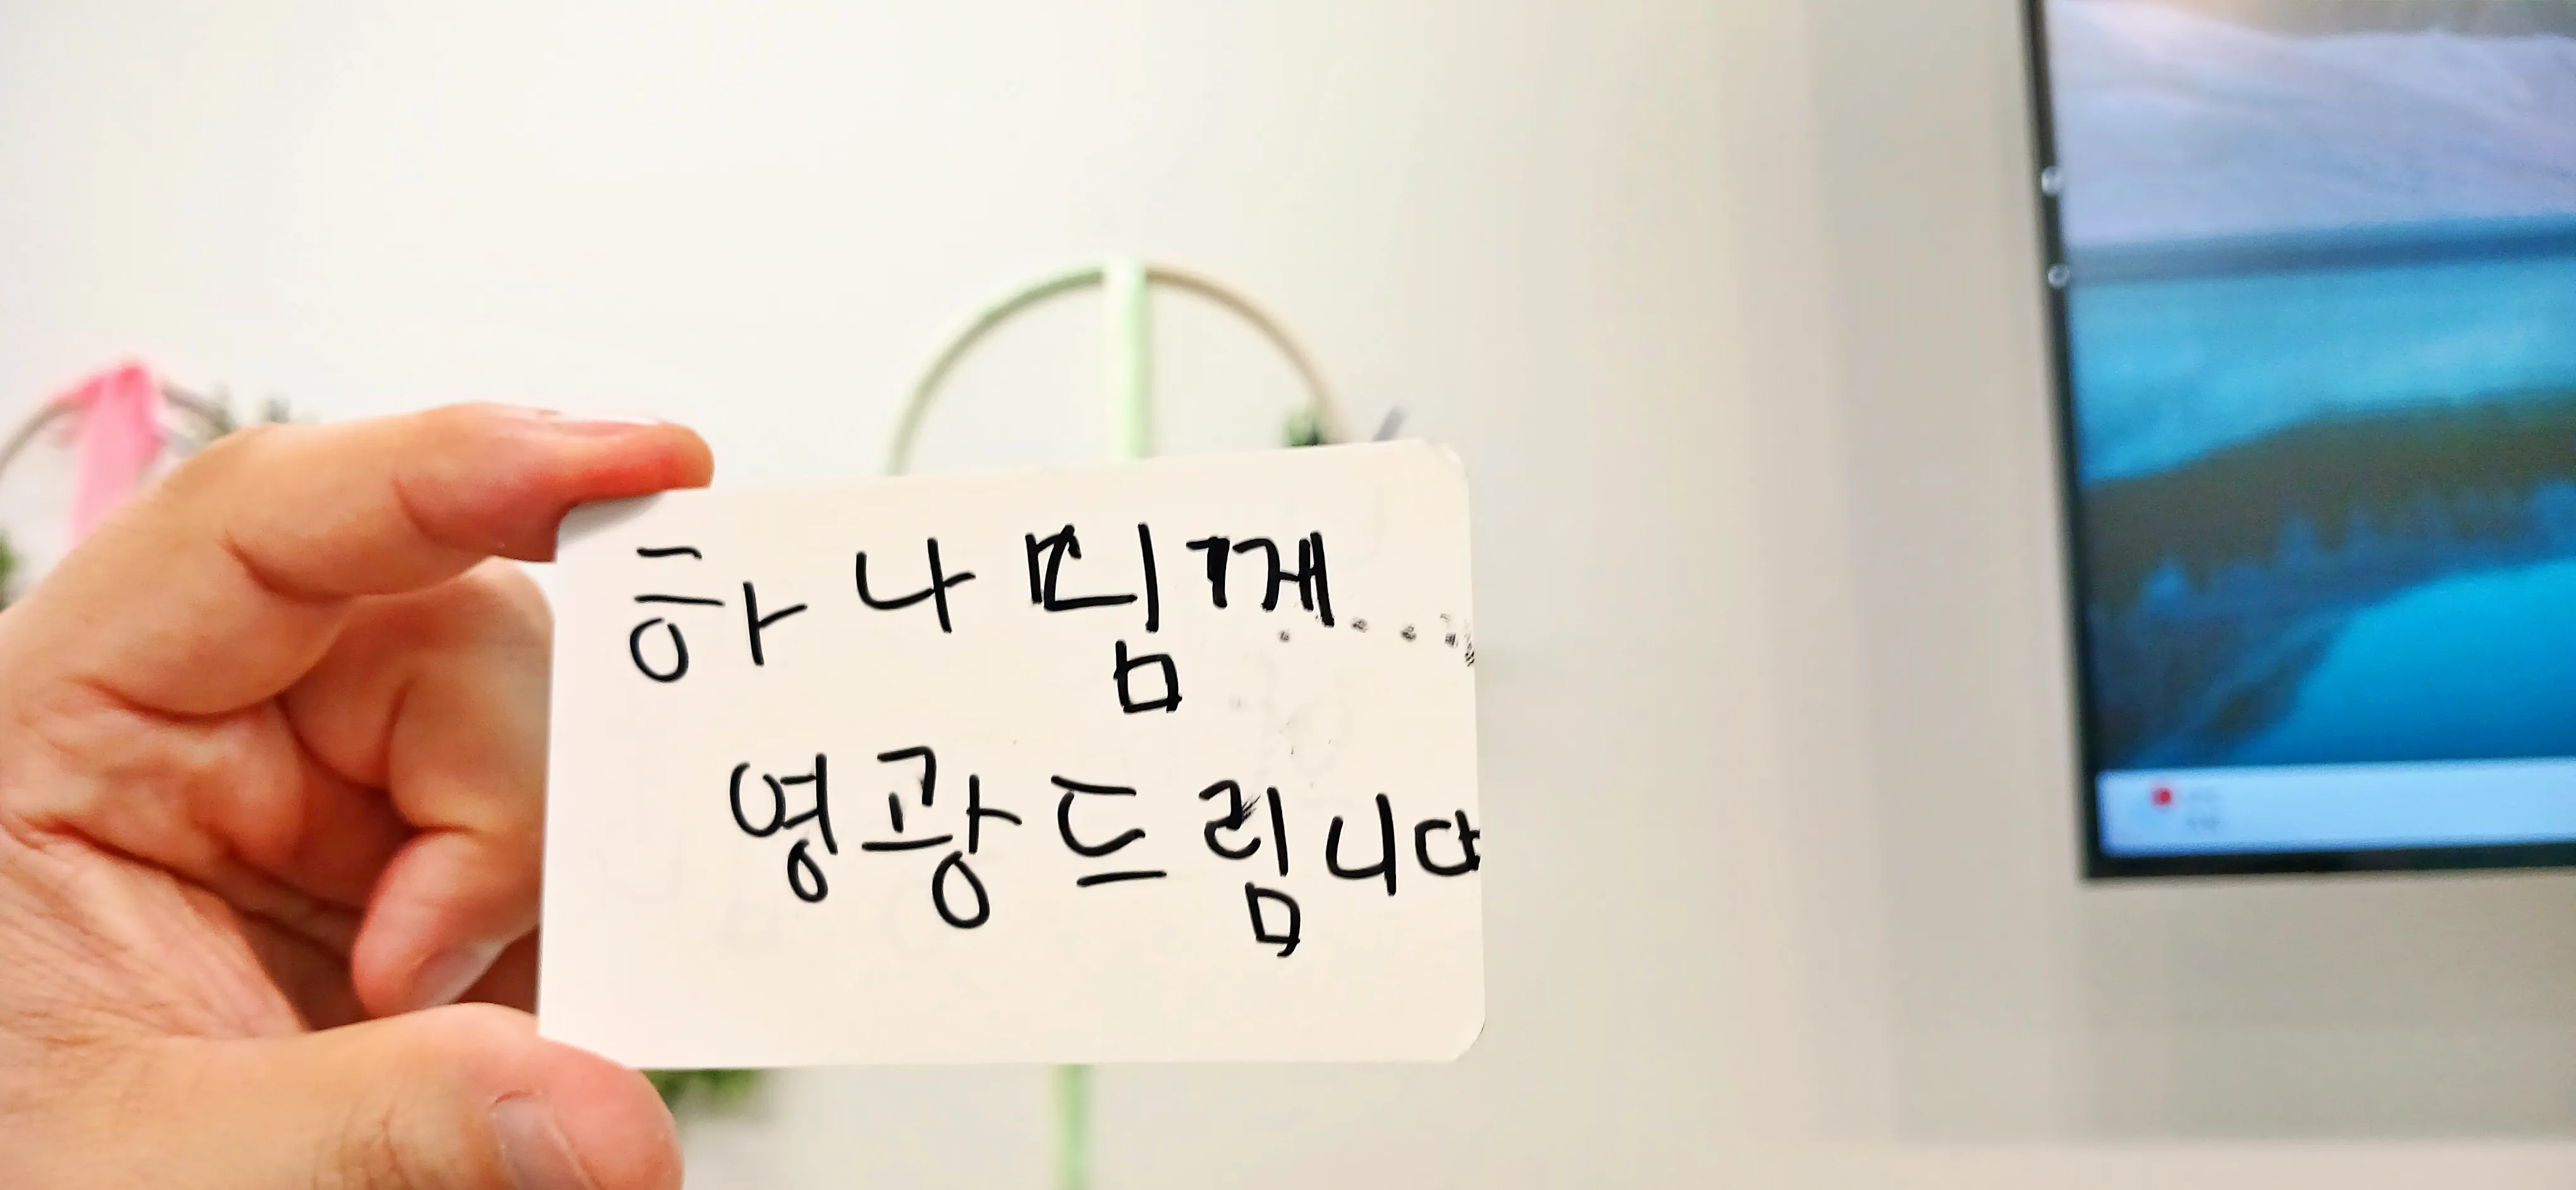 하나님께
영광드립니다